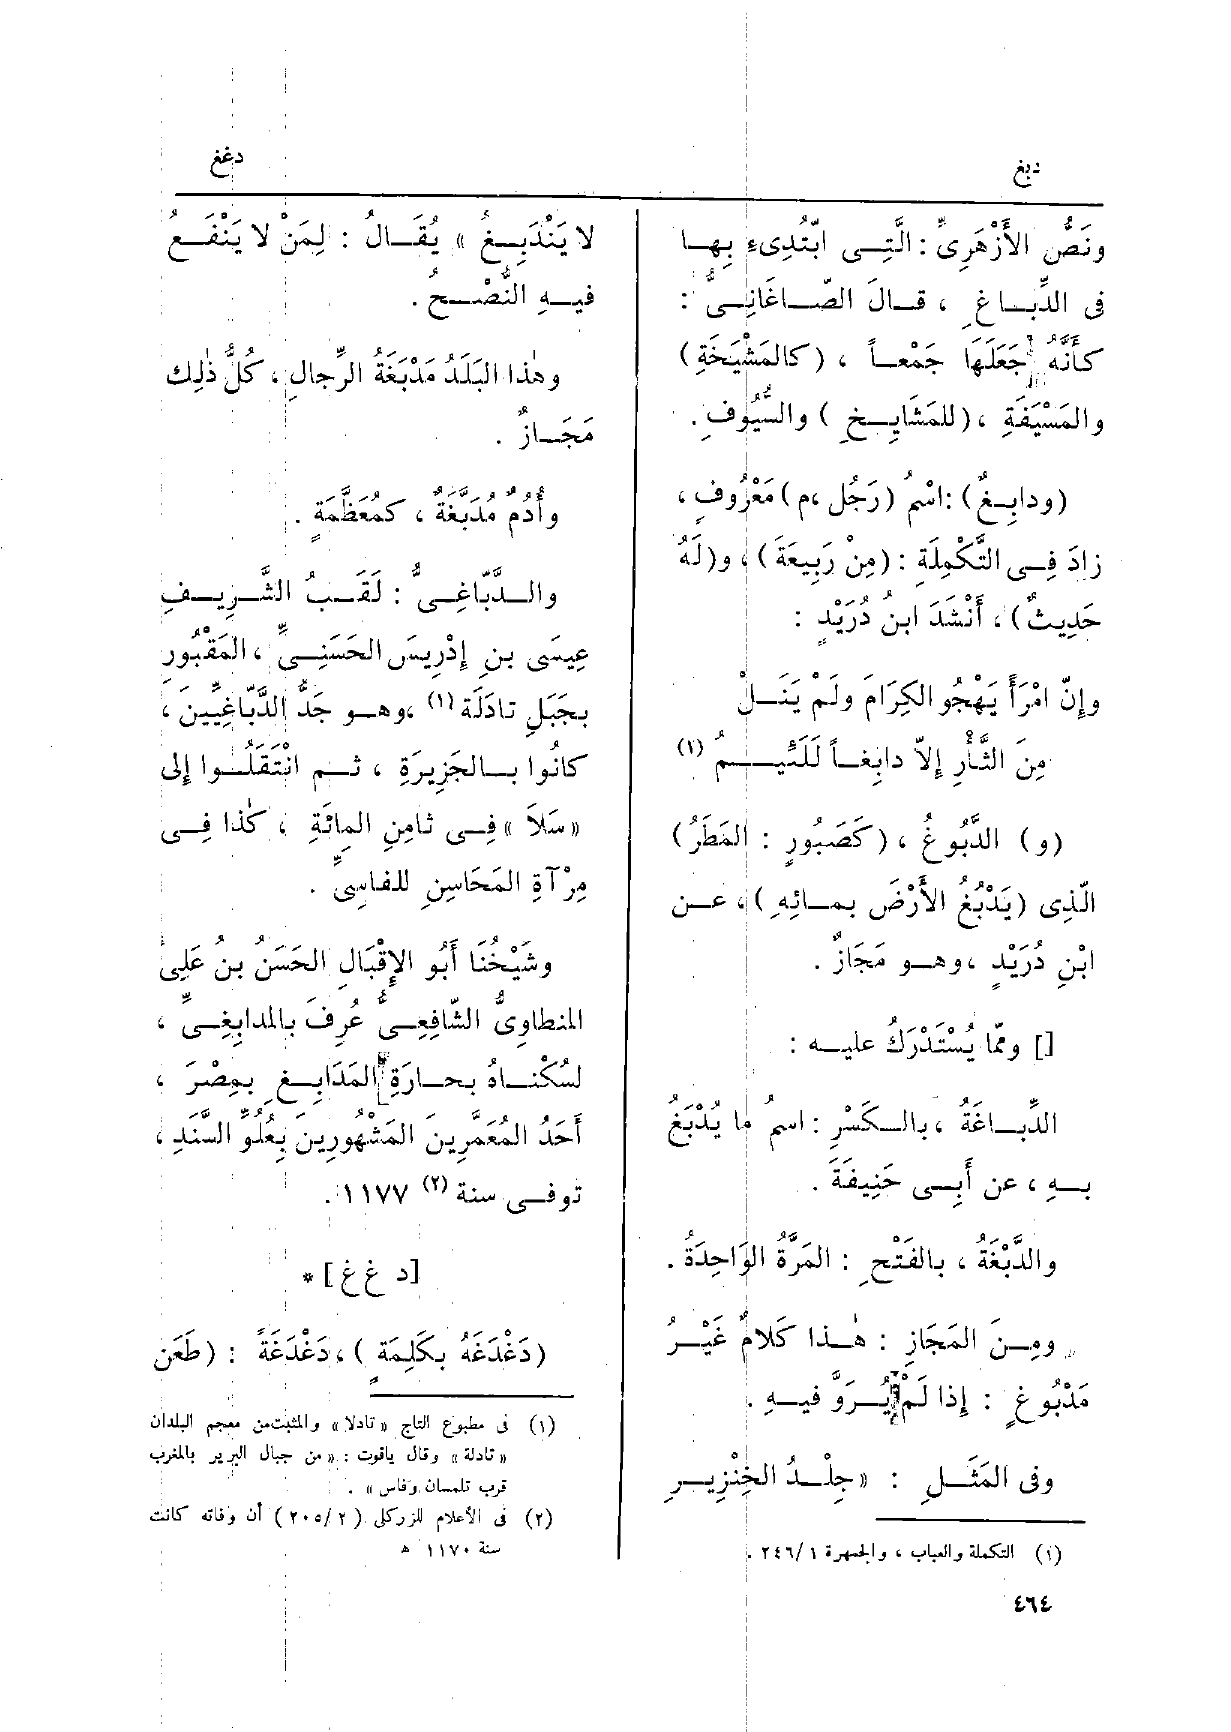 دبغ
دغغ
ونَصُّ الأَزْهَرِىِّ : الَّتِـى ابْتُدِىءَ بِهـا
فى الدِّبـاغِ ، قـالَ الصّاغَانِـىُّ :
كأَنَّهُ جَعَلَهَا جَمْعـاً ، (كالمَشْيَخَةِ)
والمَسْيَفَةِ ، (للمَشَايِـخِ ) والسُّيُوفِ .
(ودابِـغٌ) :اسْمُ (رَجُل ،م) مَعْرُوفٍ ،
زادَ فِـى التَّكْمِلَةِ : (مِنْ رَبِيعَةَ) ، و(لَهُ
حَدِيثٌ) ، أَنْشَدَ ابنُ دُرَيْدٍ :
وإِنّ امْرَأً يَهْجُو الكِرَامَ ولَمْ يَنَـلْ
مِنَ الثَّأْرِ إِلاّ دابِغـاً لَلَئِيـمُ (١)
(و) الدَّبُوغُ ، (كَصَبُورٍ : المَطَرُ)
الّذِى (يَدْبُغُ الأَرْضَ بمـائِهِ) ، عـن
ابْنِ دُرَيْدٍ ، وهـو مَجَازٌ .
[] وممّا يُسْتَدْرَكُ عليـه :
الدِّبـاغَةُ ، بالـكَسْرِ : اسمُ ما يُدْبَغُ
بـهِ ، عن أَبِـى حَنِيفَةَ .
والدَّبْغَةُ ، بالفَتْحِ : المَرَّةُ الوَاحِدَةُ .
ومِـنَ المَجَازِ : هٰـذا كَلامٌ غَيْـرُ
مَدْبُوغٍ : إِذا لَمْ يُرَوَّ فيـهِ .
وفى المَثَـلِ : « جِلْـدُ الخِنْزِيـرِ
(١) التكملة والعباب ، والجمهرة ٢٤٦/١ .
٤٦٤
لا يَنْدَبِـغُ » يُقَـالُ : لِمَنْ لا يَنْفَـعُ
فيـهِ النُّصْـحُ .
وهٰذا البَلَدُ مَدْبَغَةُ الرِّجالِ ، كُلُّ ذٰلِك
مَجَـازٌ .
وأُدُمٌ مُدَبَّغَةٌ ، كمُعَظَّمَةٍ .
والـدَّبّاغِـىُّ : لَقَـبُ الشَّرِيـفِ
عِيسَى بنِ إِدْرِيسَ الحَسَنِـىِّ ، المَقْبُورِ
بجَبَلِ تادَلَة (١) ،وهـو جَدُّ الدَّبّاغِيِّينَ ،
كانُوا بـالجَزِيرَةِ ، ثـم انْتَقَلُـوا إِلى
« سَلاَ » فِـى ثامِنِ المِائَةِ ، كَذا فِـى
مِرْآةِ المَحَاسِنِ للفاسِىِّ .
وشَيْخُنَا أَبُو الإِقْبَالِ الحَسَنُ بنُ عَلِىّ
المنطاوِىُّ الشّافِعِـىُّ عُرِفَ بالمدابِغِـىِّ ،
لسُكْنـاهُ بحـارَةِ المَدَابِـغِ بمِصْرَ ،
أَحَدُ المُعَمَّرِينَ المَشْهُورِينَ بِعُلُوِّ السَّنَدِ ،
تُوفـى سنة (٢) ١١٧٧ .
[د غ غ ] *
(دَغْدَغَهُ بكَلِمَةٍ ) ، دَغْدَغَةً : (طَعَن
(١) فى مطبوع التاج « تادلا » والمثبت من معجم البلدان
« تادلة » وقال ياقوت : « من جبال البربر بالمغرب
قرب تلمسان وفاس » .
(٢) فى الأعلام للزركلى ( ٢٠٥/٢ ) أن وفاته كانت
سنة ١١٧٠ ه